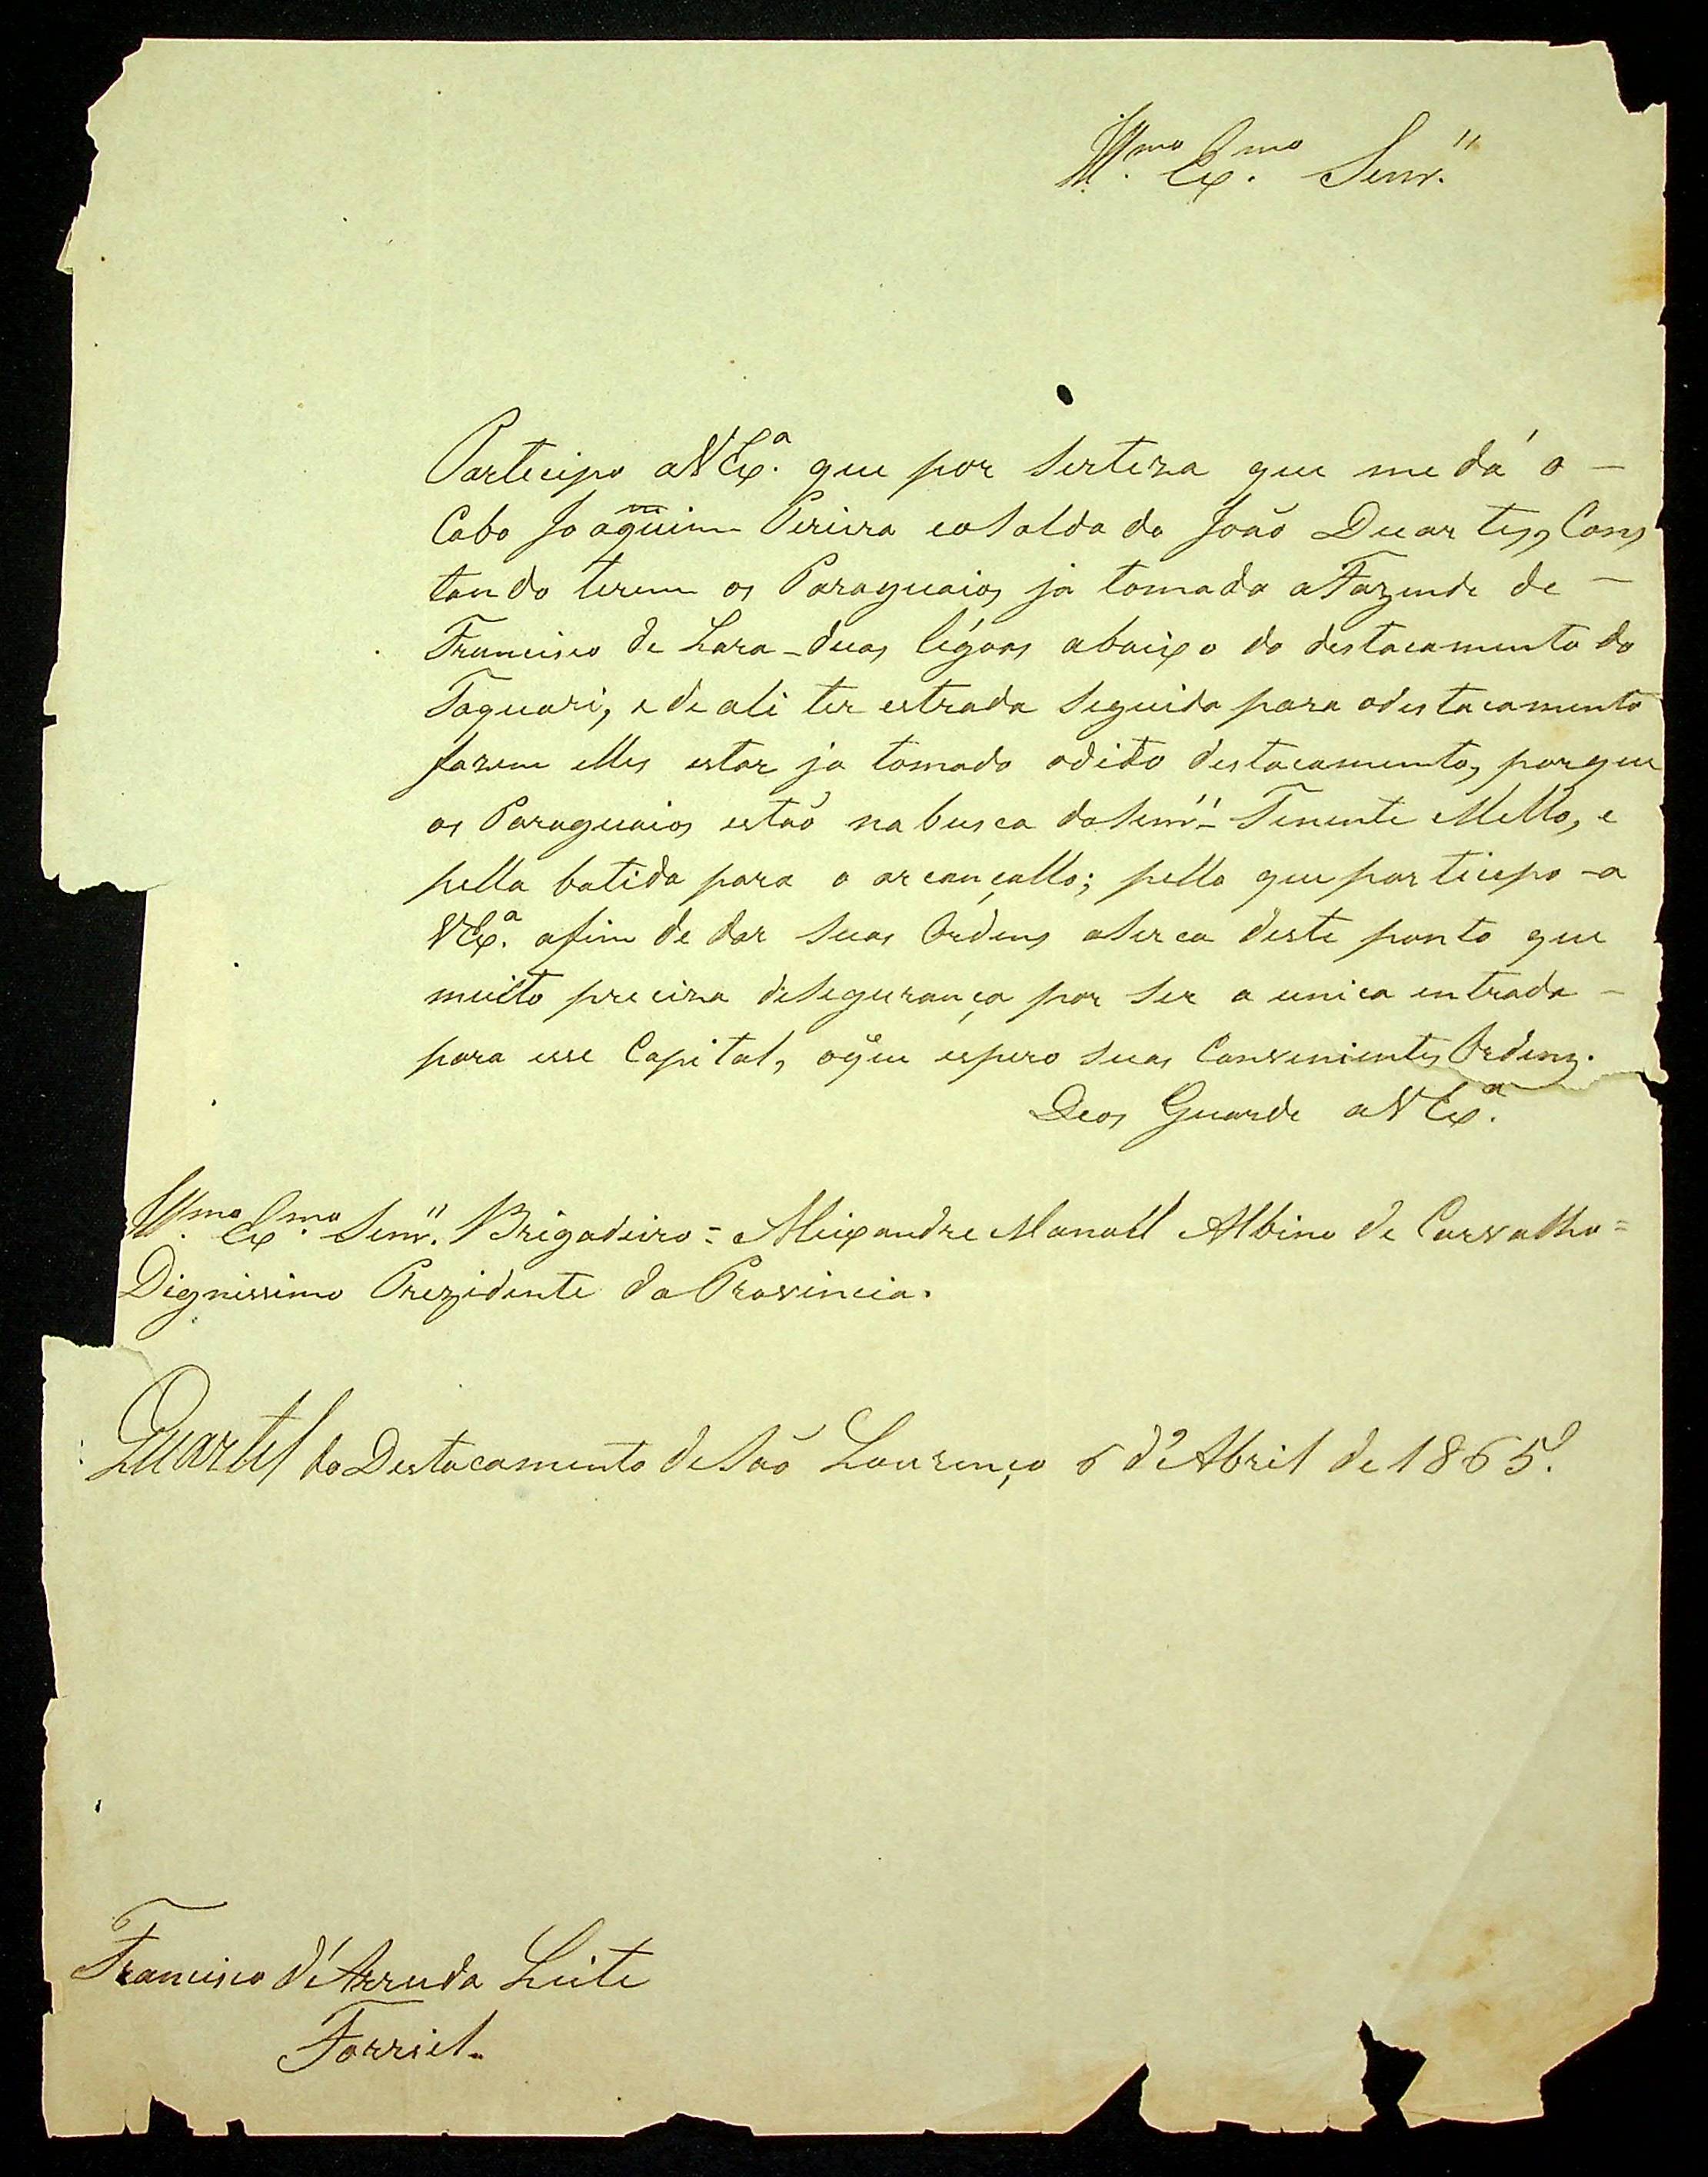 Ill.mo Ex.mo Senr."
Partecipo a V Ex.a que por serteza que me dá o -
Cabo Joaquim Pereira e o Soldado João Duartes, Cons
tando terem os Paraguaios ja tomado a Fazenda de -
Francisco de Lara - duas légoas abaixo do destacamento do
Taquari, e de ali ter estrada seguida para o destacamento
fazem elles estar ja tomado o dito destacamento, porque
os Paraguaios estaõ na busca do Senr." Tenente Mello, e
pella batida para o arcançallo; pello que participo - a
V Ex.a afim de dar suas Ordens aserca deste ponto que
muito preciza de segurança por ser a unica entrada -
para esse Capital, o que espero suas Convenientes Ordens.
Deos Guarde a V Ex.a
Ill.mo Ex.mo Senr." Brigadeiro = Aleixandre Manoel Albino de Carvalho =
Dignissimo Prezidente da Provincia.
Quartel do Destacamento de Saõ Lourenço 6 d'Abril de 1865.
Francisco d'Arruda Leite
Forriel.